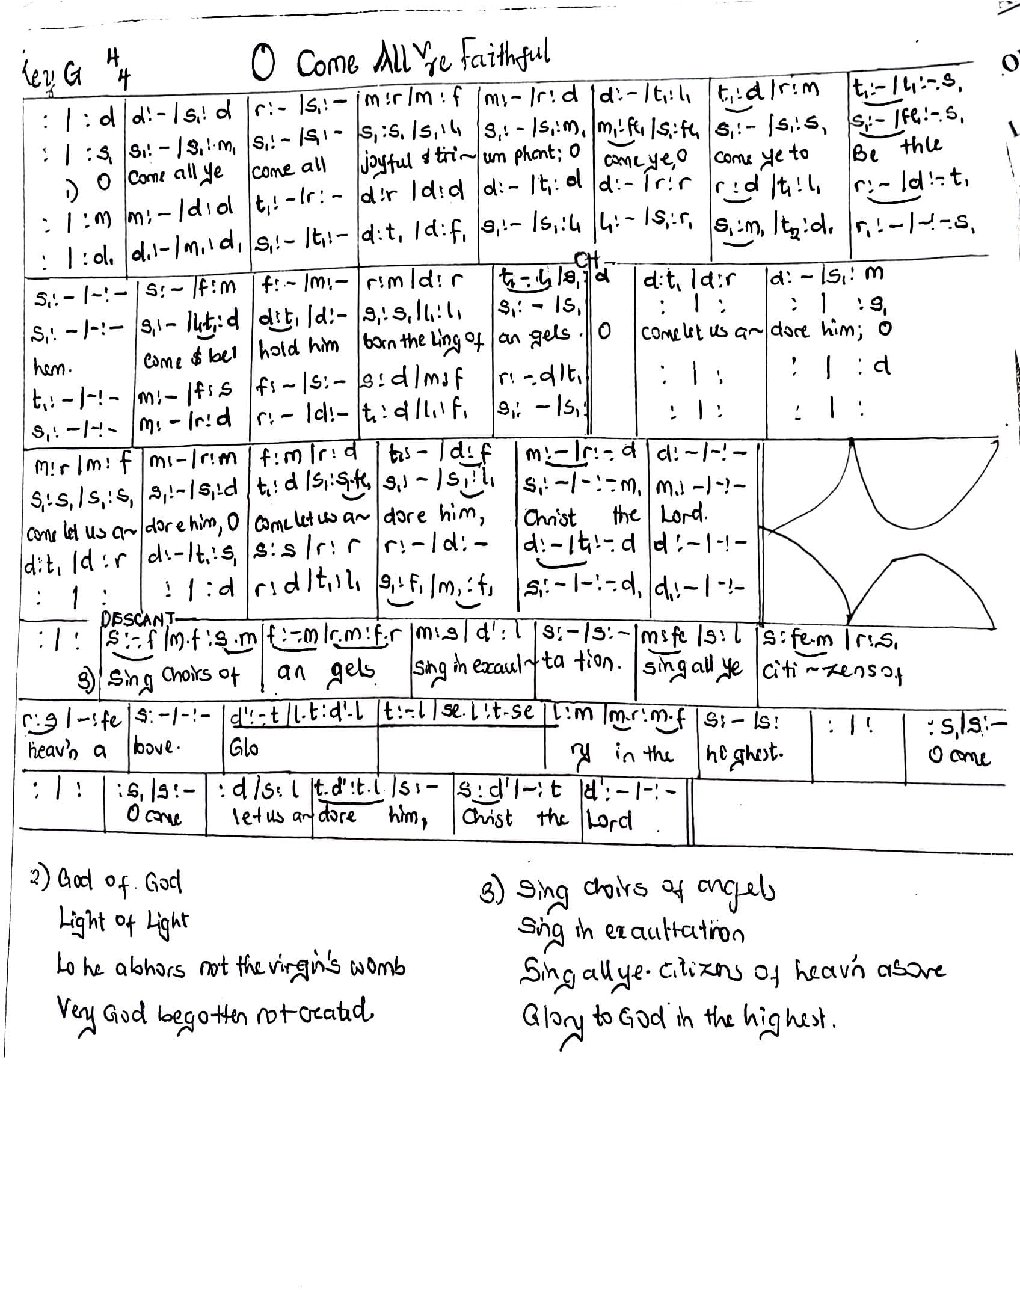 Key G 4/4 O Come All Ye Faithful
: | : d | d: - | s₁: d | r: - | s₁: - | m:r | m: f | m: - | r: d | d: - | t₁: l₁ | t₁: d | r: m | t₁: - | l₁: - . s₁
: | : s₁ | s₁: - | s₁: m₁ | s₁: - | s₁: - | s₁: s₁ | s₁: l₁ | s₁: - | s₁: m₁ | m₁: fe₁ | s₁: fe₁ | s₁: - | s₁: s₁ | s₁: - | fe₁: - . s₁
1) O Come all ye come all joyful & tri~ um phant; O come ye, O come ye to Be thle
: | : m | m: - | d: d | t₁: - | r: - | d:r | d: d | d: - | t₁: d | d: - | r: r | r: d | t₁: l₁ | r: - | d: - t₁
: | : d₁ | d₁: - | m₁: d₁ | s₁: - | t₁: - | d: t₁ | d: f₁ | s₁: - | s₁: l₁ | l₁: - | s₁: r₁ | s₁: m₁ | t₂: d₁ | r₁: - | - : - s₁
CH
s₁: - | - : - | s: - | f: m | f: - | m: - | r: m | d: r | t₁: - l₁ | s₁ | d | d: t₁ | d: r | d: - | s₁: m
s₁: - | - : - | s₁: - | l₁t₁: d | d:t₁ | d: - | s₁: s₁ | l₁: l₁ | s₁: - | s₁ | : | : | : | : s₁
hem. come & be! hold him born the King of an gels. O come let us a~ dore him; O
t₁: - | - : - | m: - | f: s | f: - | s: - | s: d | m: f | r: - d | t₁ | : | : | : | : d
s₁: - | - : - | m: - | r: d | r: - | d: - | t₁: d | l₁: f₁ | s₁: - | s₁ | : | : | : | :
m:r | m: f | m: - | r: m | f: m | r: d | t₁: - | d: f | m: - | r: - d | d: - | - : -
s₁: s₁ | s₁: s₁ | s₁: - | s₁: d | t₁: d | s₁: s₁.fe₁ | s₁: - | s₁: l₁ | s₁: - | - : - m₁ | m₁: - | - : -
come let us a~ dore him, O come let us a~ dore him, Christ the Lord.
d: t₁ | d: r | d: - | t₁: s₁ | s: s | r: r | r: - | d: - | d: - | t₁: - d | d: - | - : -
: | : | : | : d | r: d | t₁: l₁ | s₁: f₁ | m₁: f₁ | s₁: - | - : - d₁ | d₁: - | - : -
DESCANT
: | : | s: - f | m.f: s.m | f: - m | r.m: f.r | m: s | d': l | s: - | s: - | m: fe | s: l | s: fe.m | r: s₁
3) Sing Choirs of an gels sing in exaul~ ta tion. sing all ye Citi~zens of
r: s | - : fe | s: - | - : - | d': - t | l.t: d'.l | t: - l | se.l: t.se | l: m | m.r: m.f | s: - | s: | : | : | : s₁ | s: -
heav'n a bove. Glo ry in the highest. O come
: | : | : s₁ | s: - | : d | s: l | t.d': t.l | s: - | s: d' | - : t | d': - | - : -
O come let us a~ dore him, Christ the Lord.
2) God of. God
Light of Light
Lo he abhors not the virgin's womb
Very God begotten not created
3) Sing choirs of angels
Sing in exaultation
Sing all ye. citizens of heav'n above
Glory to God in the highest.